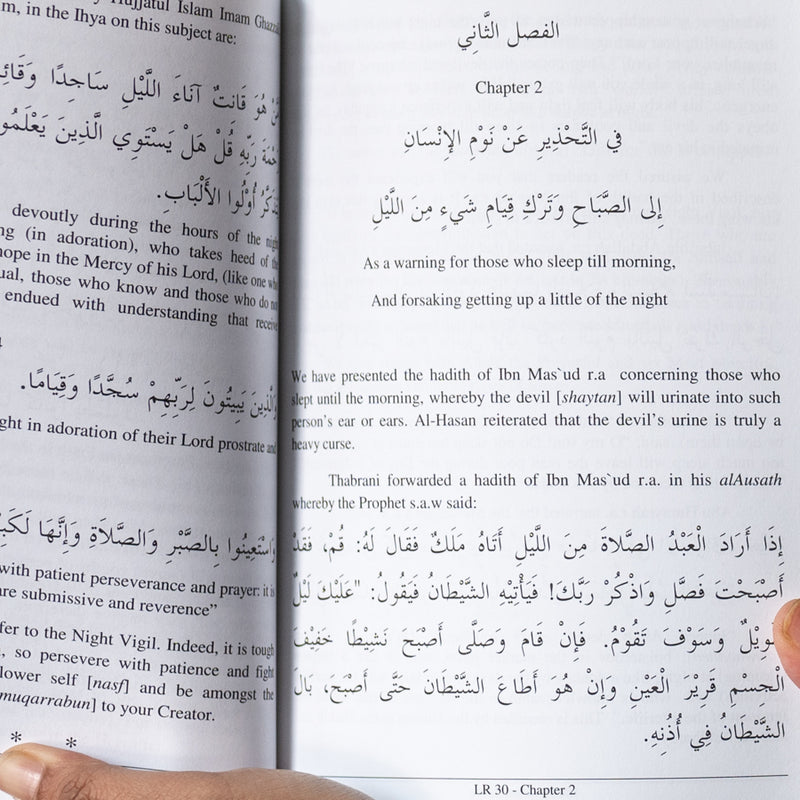 Hujjatul Islam Imam
m, in the Ihya on this subject are:
هُوَ قَانِتٌ آنَاءَ اللَّيْلِ سَاجِدًا
رَبِّهِ قُلْ هَلْ يَسْتَوِي الَّذِينَ
أُوْلُوا الأَلْبَابِ.
devoutly during the hours of the night
ng (in adoration), who takes heed of the
hope in the Mercy of his Lord, (like one who
ual, those who know and those who do not
endued with understanding that receive
وَالَّذِينَ يَبِيتُونَ لِرَبِّهِمْ سُجَّدًا وَقِيَامًا.
ght in adoration of their Lord prostrate and
وَاسْتَعِينُوا بِالصَّبْرِ وَالصَّلَاةِ وَإِنَّهَا
with patient perseverance and prayer: it is
are submissive and reverence”
fer to the Night Vigil. Indeed, it is tough
, so persevere with patience and fight
lower self [nasf] and be amongst the
muqarrabun] to your Creator.
* *
الفصل الثَّاني
Chapter 2
في التَّحْذِيرِ عَنْ نَوْمِ الإِنْسَانِ
إِلى الصَّبَاحِ وَتَرْكِ قِيَامِ شَيءٍ مِنَ اللَّيْلِ
As a warning for those who sleep till morning,
And forsaking getting up a little of the night
We have presented the hadith of Ibn Mas`ud r.a concerning those who
slept until the morning, whereby the devil [shaytan] will urinate into such
person’s ear or ears. Al-Hasan reiterated that the devil’s urine is truly a
heavy curse.
Thabrani forwarded a hadith of Ibn Mas`ud r.a. in his alAusath
whereby the Prophet s.a.w said:
إِذَا أَرَادَ الْعَبْدُ الصَّلَاةَ مِنَ اللَّيْلِ أَتَاهُ مَلَكٌ فَقَالَ لَهُ: قُمْ، فَقَدْ
أَصْبَحْتَ فَصَلِّ وَاذْكُرْ رَبَّكَ! فَيَأْتِيْهِ الشَّيْطَانُ فَيَقُولُ: "عَلَيْكَ لَيْلٌ
طَوِيْلٌ وَسَوْفَ تَقُوْمُ. فَإِنْ قَامَ وَصَلَّى أَصْبَحَ نَشِيْطًا خَفِيْفَ
الْجِسْمِ قَرِيْرَ الْعَيْنِ وَإِنْ هُوَ أَطَاعَ الشَّيْطَانَ حَتَّى أَصْبَحَ، بَالَ
الشَّيْطَانُ فِي أُذُنِهِ.
LR 30 - Chapter 2